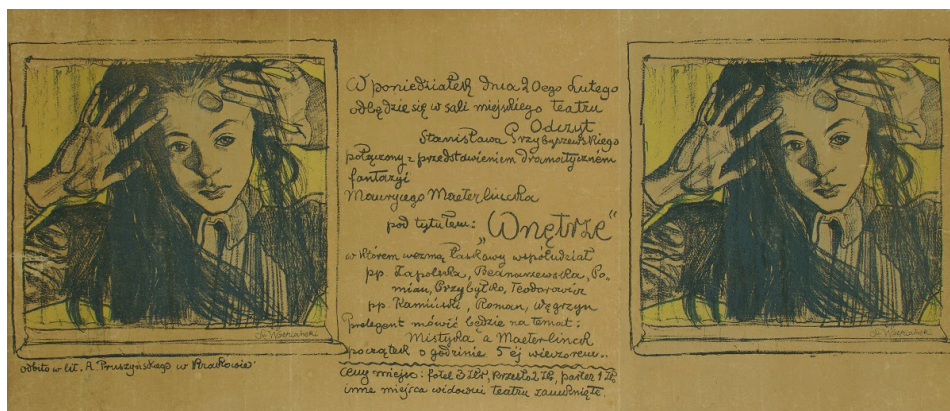 W poniedziałek dnia 20ego Lutego
odbędzie się w sali miejskiego teatru
Odczyt
Stanisława Przybyszewskiego
połączony z przedstawieniem dramatycznem
fantazyi
Maurycego Maeterlincka
pod tytułem:
„Wnętrze“
w którem wezmą łaskawy współudział
pp. Zapolska, Bednarzewska, Po-
mian, Przybyłko, Teodorowicz
pp. Kamiński, Roman, Węgrzyn
Prelegent mówić będzie na temat:
Mistyka a Maeterlinck
początek o godzinie 5 ej wieczorem..
Ceny miejsc: fotel 3 Złr, krzesło 2 Złr, parter 1 Złr
inne miejsca widowni teatru zamknięte.
St. Wyspiański
St. Wyspiański
odbito w lit. A. Pruszyńskiego w Krakowie